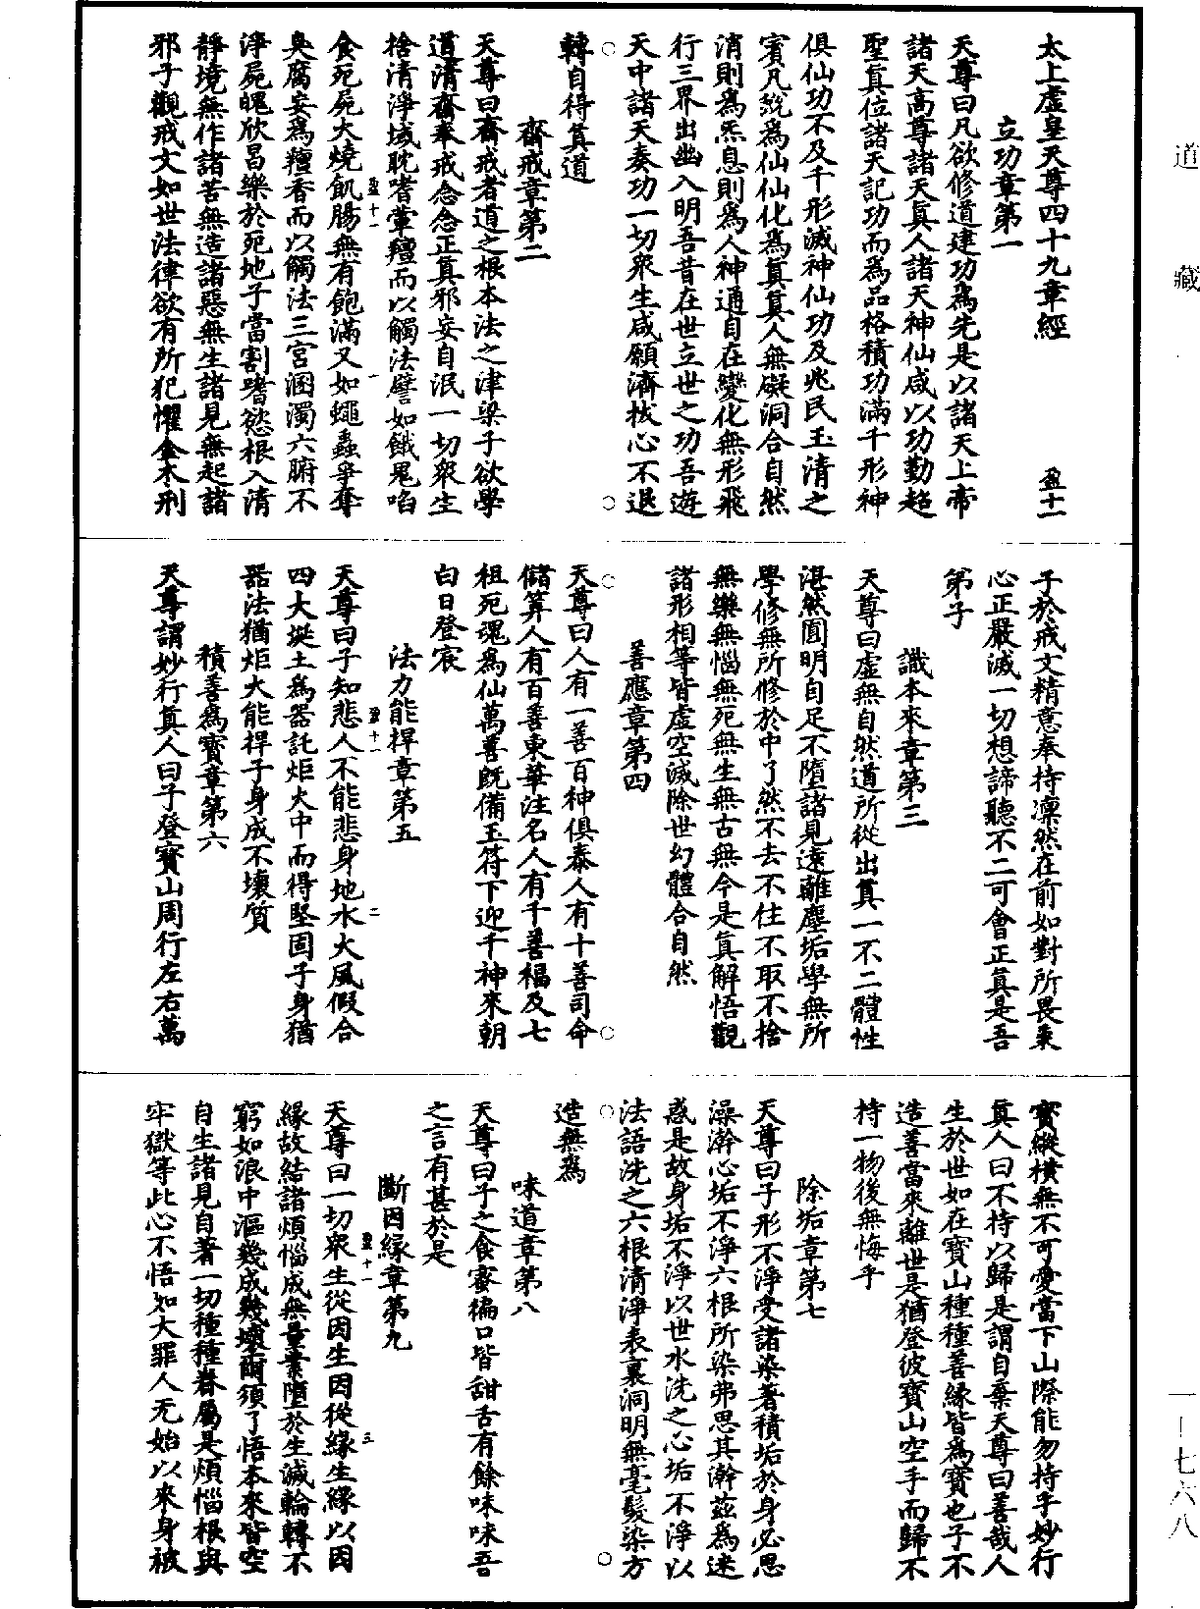 太上虛皇天尊四十九章經　盈十一
立功章第一
天尊曰凡欲修道建功爲先是以諸天上帝
諸天高尊諸天真人諸天神仙咸以功勤超
聖真位諸天記功而爲品格積功滿千形神
俱仙功不及千形滅神仙功及兆民玉清之
賓凡蛻爲仙仙化爲真真人無礙洞合自然
消則爲炁息則爲人神通自在變化無形飛
行三界出幽入明吾昔在世立世之功吾遊
天中諸天奏功一切衆生咸願濟拔心不退
轉自得其道
齋戒章第二
天尊曰齋戒者道之根本法之津梁子欲學
道清齋奉戒念念正真邪妄自泯一切衆生
捨清淨域耽嗜葷羶而以觸法譬如餓鬼啗
食死屍大燒飢腸無有飽滿又如蠅蟲爭奪
臭腐妄爲羶香而以觸法三宮溷濁六腑不
淨屍魄欣昌樂於死地子當割嗜慾根入清
靜境無作諸苦無造諸惡無生諸見無起諸
邪子觀戒文如世法律欲有所犯懼金木刑
子於戒文精意奉持凜然在前如對所畏秉
心正嚴滅一切想諦聽不二可會正真是吾
第子
識本來章第三
天尊曰虛無自然道所從出真一不二體性
湛然圓明自足不墮諸見遠離塵垢學無所
學修無所修於中了然不去不住不取不捨
無樂無惱無死無生無古無今是真解悟觀
諸形相等皆虛空滅除世幻體合自然
善應章第四
天尊曰人有一善百神俱泰人有十善司命
儲筭人有百善東華注名人有千善福及七
祖死魂爲仙萬善既備玉符下迎千神來朝
白日登宸
法力能捍章第五
天尊曰子知悲人不能悲身地水火風假合
四大埏土爲器託炬火中而得堅固子身猶
器法猶炬火能捍子身成不壞質
積善爲寶章第六
天尊謂妙行真人曰子登寶山周行左右萬
寶縱橫無不可愛當下山際能勿持乎妙行
真人曰不持以歸是謂自棄天尊曰善哉人
生於世如在寶山種種善緣皆爲寶也子不
造善當來離世是猶登彼寶山空手而歸不
持一物後無悔乎
除垢章第七
天尊曰子形不淨受諸染著積垢於身必思
澡澣心垢不淨六根所染弗思其澣茲爲迷
惑是故身垢不淨以世水洗之心垢不淨以
法語洗之六根清淨表裏洞明無毫髮染方
造無爲
味道章第八
天尊曰子之食蜜徧口皆甜舌有餘味味吾
之言有甚於是
斷因緣章第九
天尊曰一切衆生從因生因從緣生緣以因
緣故結諸煩惱成無量業墮於生滅輪轉不
窮如浪中漚幾成幾壞爾須了悟本來皆空
自生諸見自著一切種種眷屬是煩惱根與
牢獄等此心不悟如大罪人无始以來身被
盈十一　一
盈十一　二
盈十一　三
道藏
一－七六八